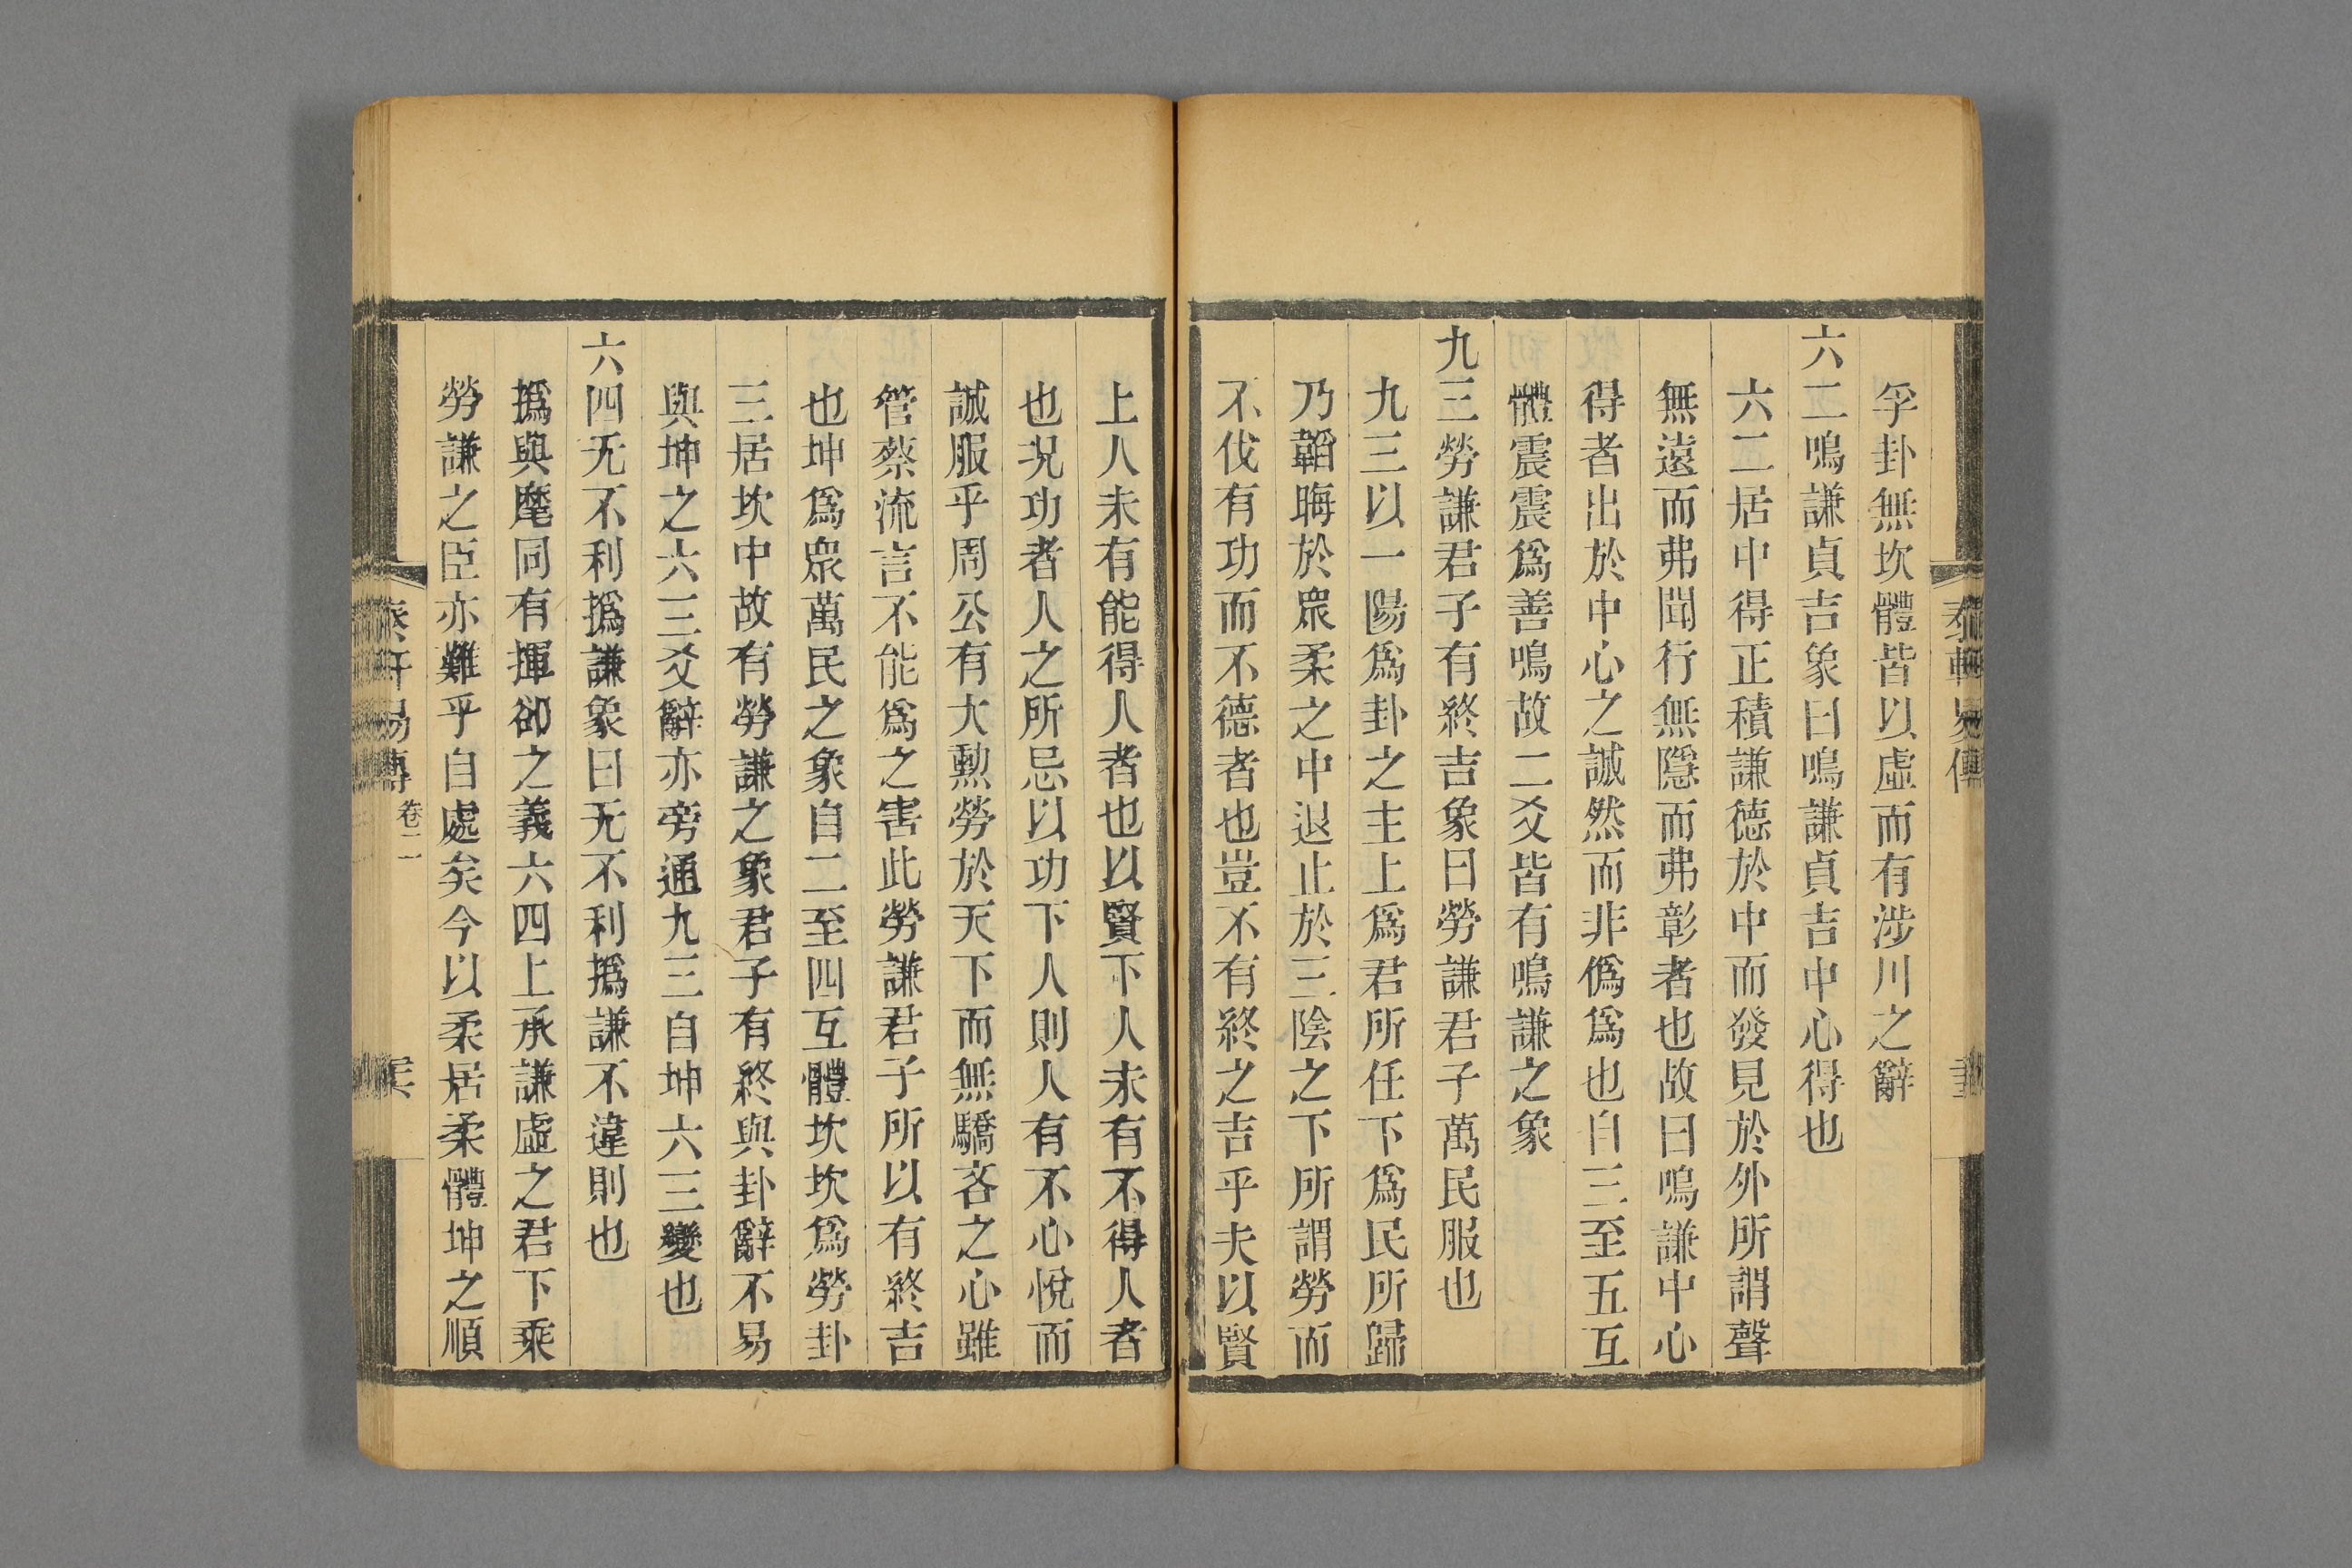 孚卦無坎體皆以虛而有涉川之辭
六二鳴謙貞吉象曰鳴謙貞吉中心得也
六二居中得正積謙德於中而發見於外所謂聲
無遠而弗聞行無隱而弗彰者也故曰鳴謙中心
得者出於中心之誠然而非僞爲也自三至五互
體震震爲善鳴故二爻皆有鳴謙之象
九三勞謙君子有終吉象曰勞謙君子萬民服也
九三以一陽爲卦之主上爲君所任下爲民所歸
乃韜晦於衆柔之中退止於三陰之下所謂勞而
不伐有功而不德者也豈不有終之吉乎夫以賢
上人未有能得人者也以賢下人未有不得人者
也况功者人之所忌以功下人則人有不心悅而
誠服乎周公有大勲勞於天下而無驕吝之心雖
管蔡流言不能爲之害此勞謙君子所以有終吉
也坤爲衆萬民之象自二至四互體坎坎爲勞卦
三居坎中故有勞謙之象君子有終與卦辭不易
與坤之六三爻辭亦旁通九三自坤六三變也
六四无不利撝謙象曰无不利撝謙不違則也
撝與麾同有揮卻之義六四上承謙虛之君下乘
勞謙之臣亦難乎自處矣今以柔居柔體坤之順
易傳
卷二